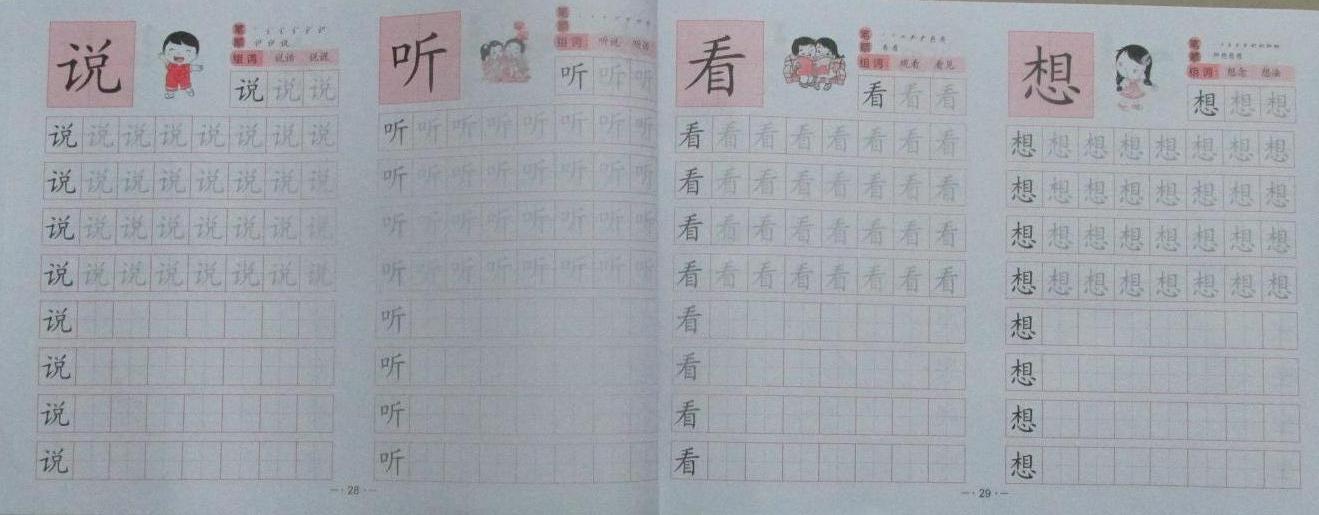 说
笔顺
组词 说话
说说说
说说说说说说说说
说说说说说说说说
说说说说说说说说
说说说说说说说说
说
说
说
说
听
笔顺
组词 听说
听听听
听听听听听听听听
听听听听听听听听
听听听听听听听听
听听听听听听听听
听
听
听
听
28
看
笔顺
组词 观看 看见
看看看
看看看看看看看看
看看看看看看看看
看看看看看看看看
看看看看看看看看
看
看
看
看
想
笔顺
组词 想念 想法
想想想
想想想想想想想想
想想想想想想想想
想想想想想想想想
想想想想想想想想
想
想
想
想
29